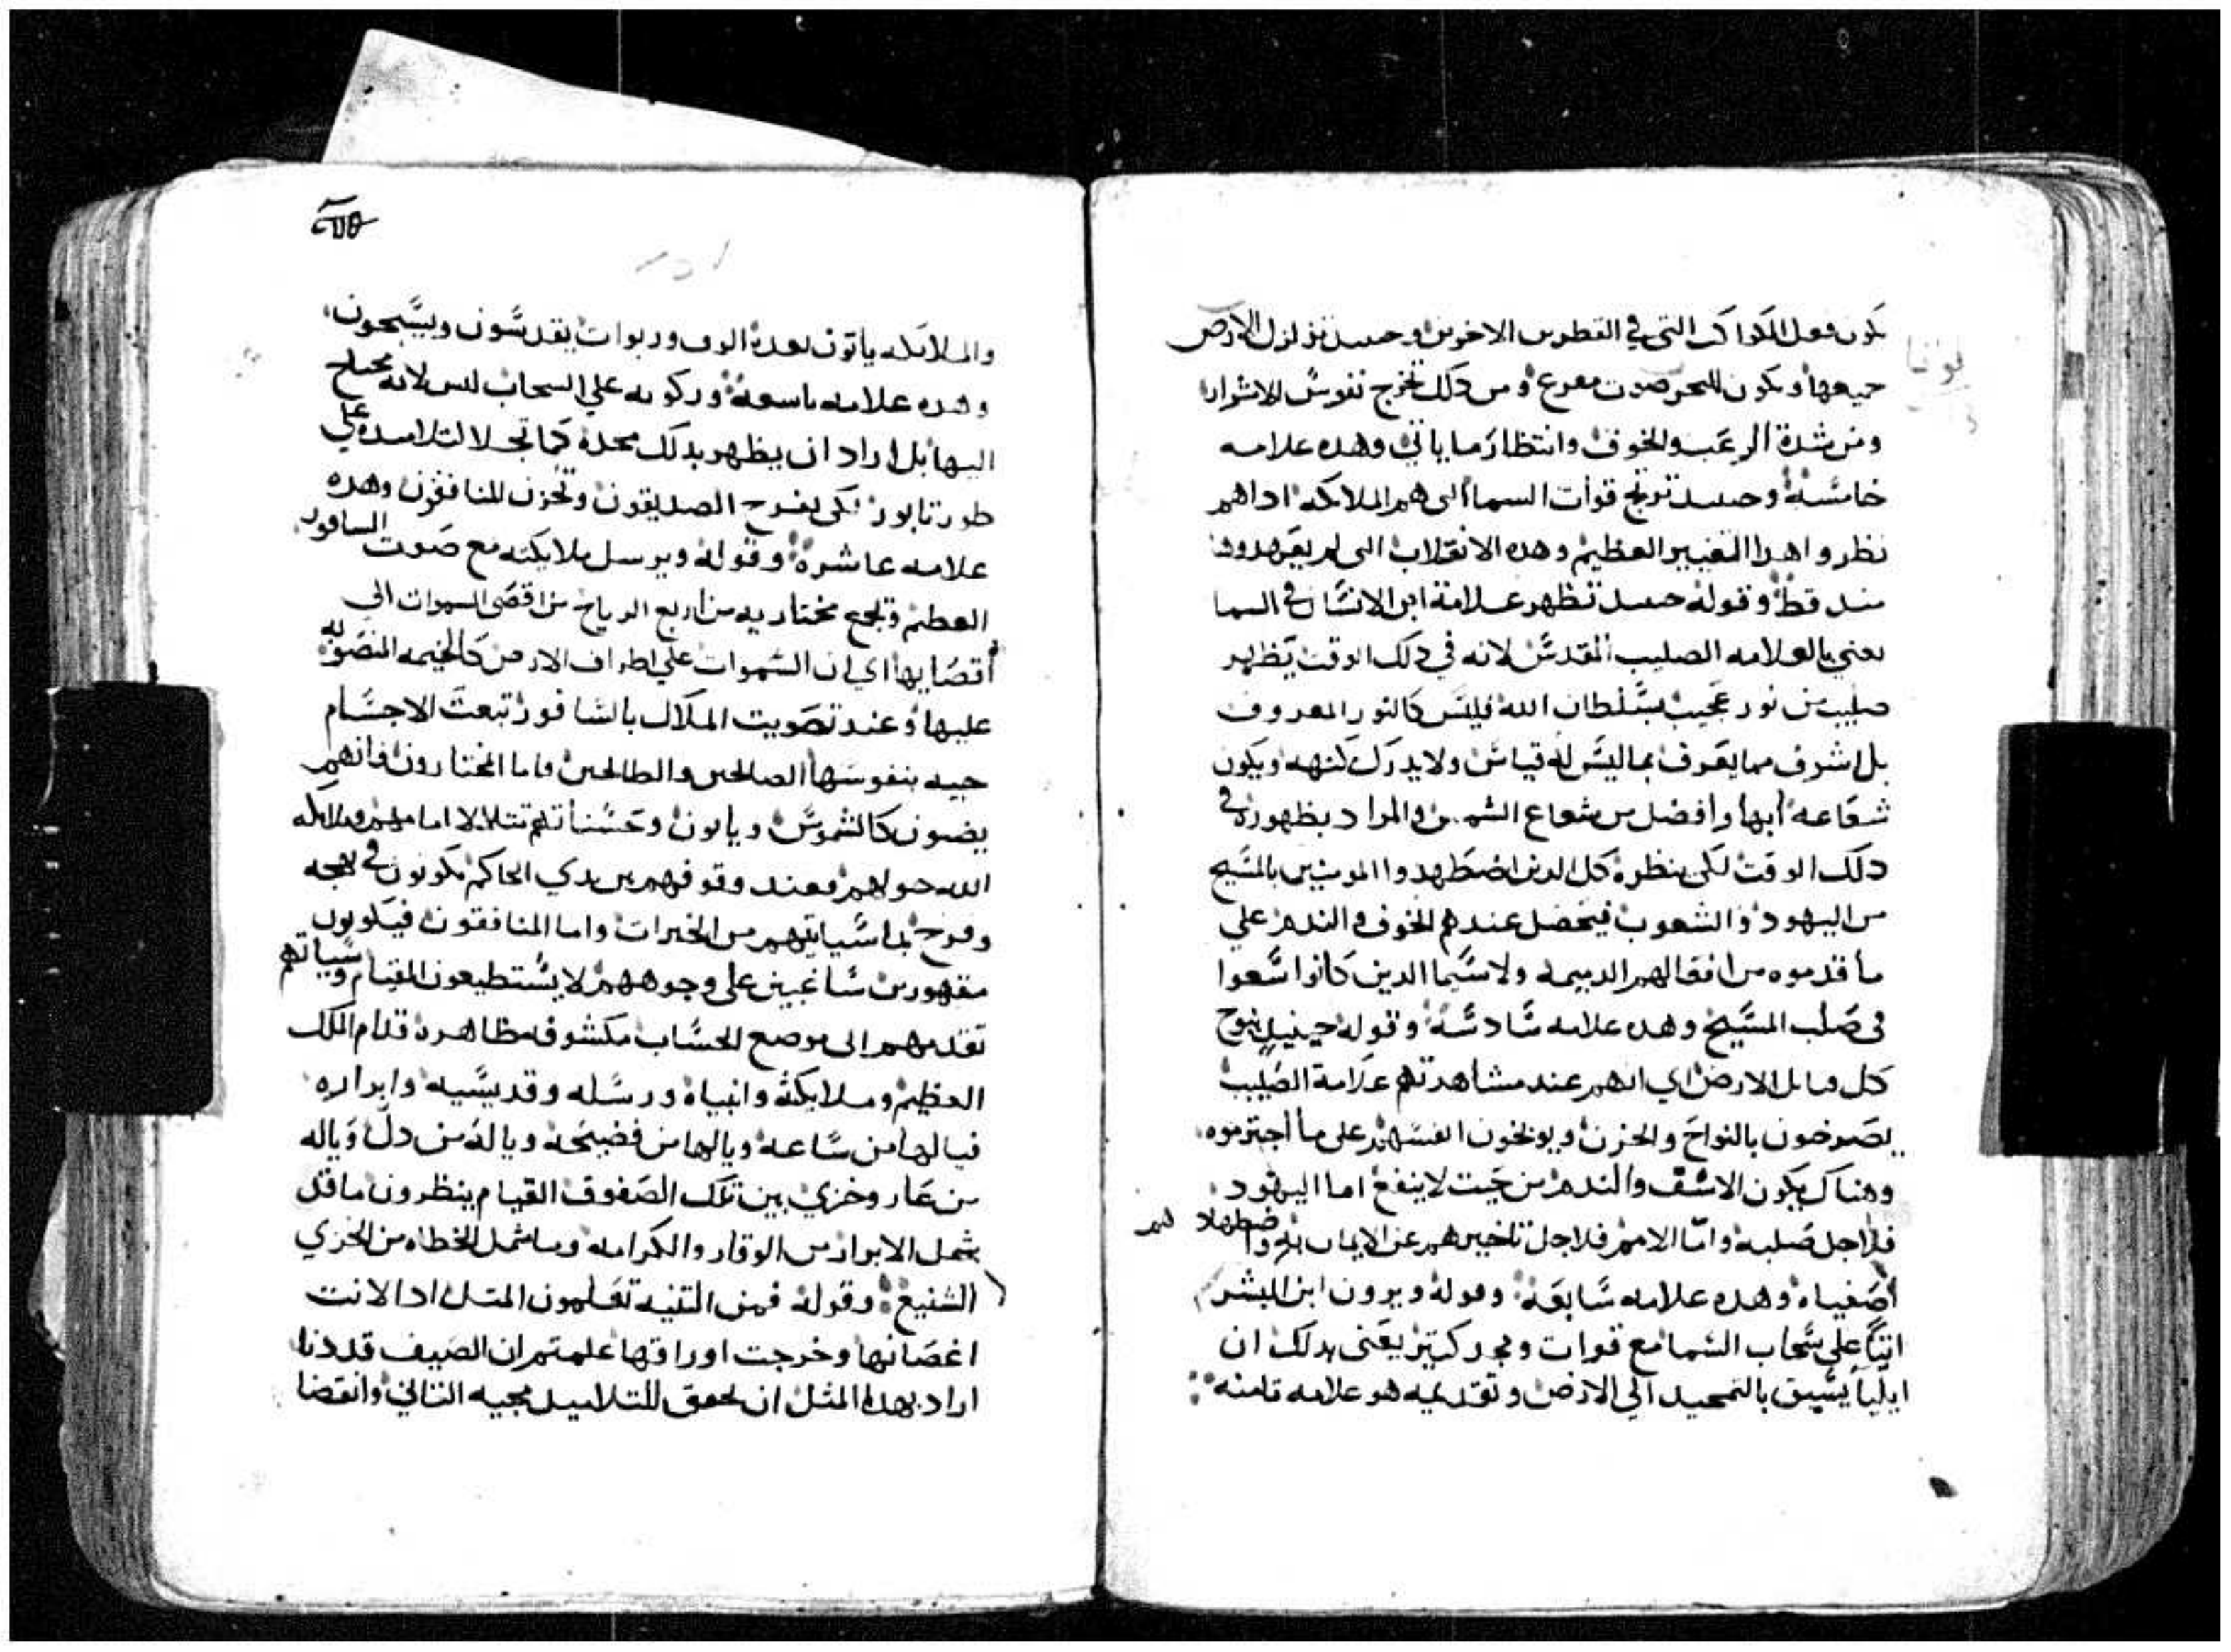 يكون فعل الكواكب التي في القطرين الاخرين وحينيد تزلزل الارض
جميعها ويكون للبحر صوت مفزع ومن ذلك تخرج نفوس الاشرار
ومن شدة الرعب والخوف وانتظار ما ياتي وهده علامه
خامسة وحينيد ترتج قوات السما التى هم الملايكه اداهم
نظروا هدا التغيير العظيم وهده الانقلاب التى لم يعهدوها
مند قط وقوله حينيد تظهر علامة ابن الانسان في السما
يعني بالعلامه الصليب المقدس لانه في دلك الوقت يظهر
صليب من نور عجيب بسلطان الله فليس كالنور المعروف
بل اشرف مما يعرف بما ليس له قياس ولا يدرك كنهه ويكون
شعاعه ابها وافضل من شعاع الشمس والمراد بظهوره في
دلك الوقت لكى ينظره كل الدين اضطهدوا المومنين بالمسيح
من اليهود والشعوب فيحصل عندهم الخوف والندم علي
ما قدموه من افعالهم الدميمه ولا سيما الدين كانوا سعوا
في صلب المسيح وهده علامه سادسة وقوله حينيد ينوح
كل قبايل الارض اي انهم عند مشاهدتهم علامة الصليب
يصرخون بالنواح والحزن ويوبخون انفسهم على ما اجترموه
وهناك يكون الاسف والندم من حيت لا ينفع اما اليهود
فلاجل صلبه واما الامم فلاجل تاخيرهم عن الايمان به واضطهادهم
اصفياه وهده علامه سابعة وقوله ويرون ابن البشر
اتيا على سحاب السما مع قوات ومجد كتير يعني بدلك ان
ايليا يسبق بالتمجيد الي الارض وتقديمه هو علامه تامنه
والملايكه ياتون بعدة الوف وربوات يقدسون ويسبحون
وهده علامه تاسعة وركوبه علي السحاب ليس لانه محتاج
اليها بل اراد ان يظهر بدلك مجده كما تجلا لتلاميده علي
طور تابور لكى يفرح الصديقون وتحزن المنافقون وهده
علامه عاشرة وقوله ويرسل ملايكته مع صوت السافور
العظيم وتجمع مختاريه من اربع الرياح من اقصى السموات الي
اقصايها اي ان السموات علي اطراف الارض كالخيمه المنصوبه
عليها وعند تصويت الملاك بالسافور تبعت الاجسام
حيه بنفوسها الصالحين والطالحين فاما المختارون فانهم
يضون كالشموس وياتون وحسناتهم تتلالا امامهم وملايكه
الله حولهم وعند وقوفهم بين يدي الحاكم يكونون في بهجه
وفرح بما سياتيهم من الخيرات واما المنافقون فيكونون
مقهورين شاغبين على وجوههم لا يستطيعون القيام وسياتهم
تقدمهم الى موضع الحساب مكشوفه ظاهرة قدام الملك
العظيم وملايكته وانبياه ورسله وقديسيه وابراره
فيا لها من ساعه ويا لها من فضيحه ويا له من دل ويا له
من عار وخزي بين تلك الصفوف القيام ينظرون ما قد
شمل الابرار من الوقار والكرامه وما شمل الخطاه من الخزي
الشنيع وقوله فمن التينه تعلمون المتل ادا لانت
اغصانها وخرجت اوراقها علمتم ان الصيف قد دنا
اراد بهدا المتل ان يحقق للتلاميد مجيه التاني وانقضا